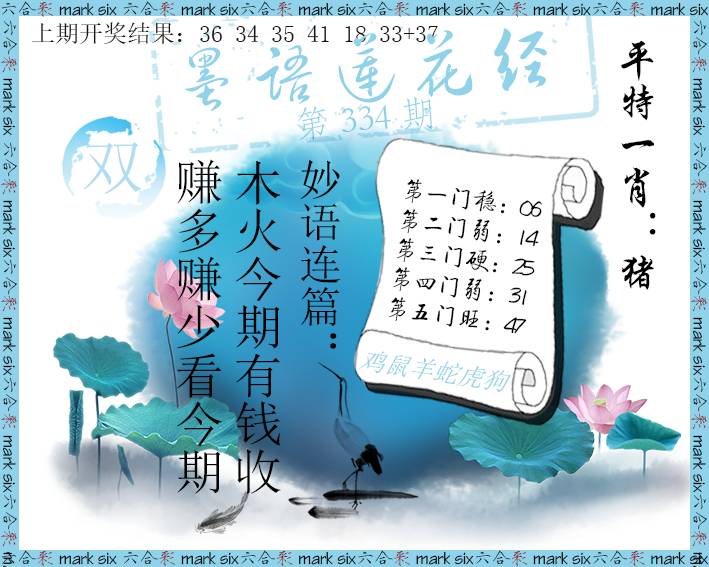 上期开奖结果：36 34 35 41 18 33+37
墨语莲花经
第 334 期
双
平特一肖：猪
妙语连篇：
木火今期有钱收
赚多赚少看今期
第一门稳：06
第二门弱：14
第三门硬：25
第四门弱：31
第五门旺：47
鸡鼠羊蛇虎狗
mark six 六合彩 mark six 六合彩 mark six 六合彩 mark six 六合彩 mark six 六合彩